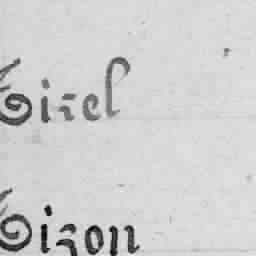 Tizel
Tizon